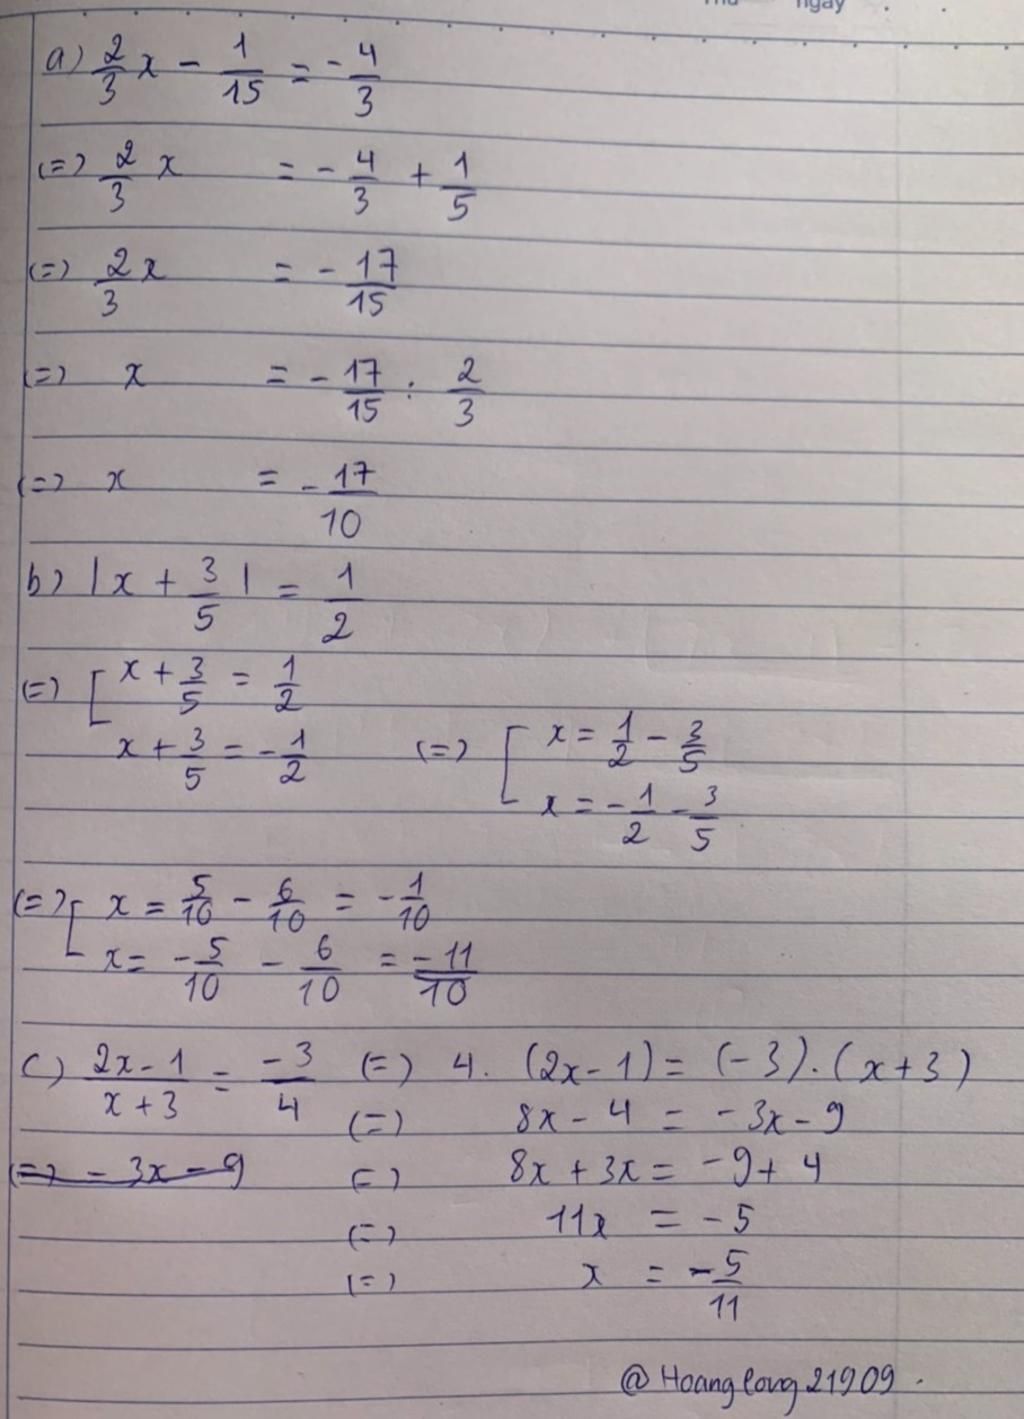 ngày
a) 2/3 x - 1/15 = - 4/3
(=) 2/3 x = - 4/3 + 1/5
(=) 2x/3 = - 17/15
(=) x = - 17/15 : 2/3
(=) x = - 17/10
b) |x + 3/5| = 1/2
(=) [ x + 3/5 = 1/2
x + 3/5 = - 1/2 (=) [ x = 1/2 - 3/5
x = - 1/2 - 3/5
(=) [ x = 5/10 - 6/10 = - 1/10
x = - 5/10 - 6/10 = -11/10
c) 2x - 1 / x + 3 = -3/4 (=) 4. (2x - 1) = (-3).(x + 3)
(=) 8x - 4 = -3x - 9
(=) - 3x - 9 (=) 8x + 3x = -9 + 4
(=) 11x = -5
(=) x = -5/11
@Hoanglong21909.